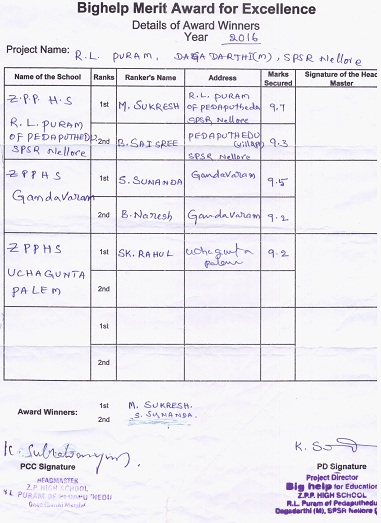 Bighelp Merit Award for Excellence
Details of Award Winners
Year 2016
Project Name: R.L. PURAM, DAGADARTHI(M), SPSR Nellore
Name of the School Ranks Ranker's Name Address Marks Secured Signature of the Head Master
Z.P.P H.S
R.L. PURAM
OF PEDAPUTHEDU
SPSR Nellore
1st M. SUKRESH R.L. PURAM OF PEDAPUTHEDU SPSR Nellore 9.7
2nd B. SAI SREE PEDAPUTHEDU (village) SPSR Nellore 9.3
Z P P HS
Gandavaram
1st S. SUNANDA Gandavaram 9.5
2nd B. Naresh Gandavaram 9.2
Z P P H S
UCHAGUNTA
PALEM
1st SK. RAHUL uchagunta palem 9.2
2nd
1st
2nd
Award Winners: 1st M. SUKRESH.
2nd S. SUNANDA.
PCC Signature
HEADMASTER
Z.P. HIGH SCHOOL
R.L. PURAM OF PEDAPUTHEDU
K. S
PD Signature
Project Director
Big help for Education
Z.P.P. HIGH SCHOOL
R.L. Puram of Pedaputhedu
Dagadarthi (M), SPSR Nellore